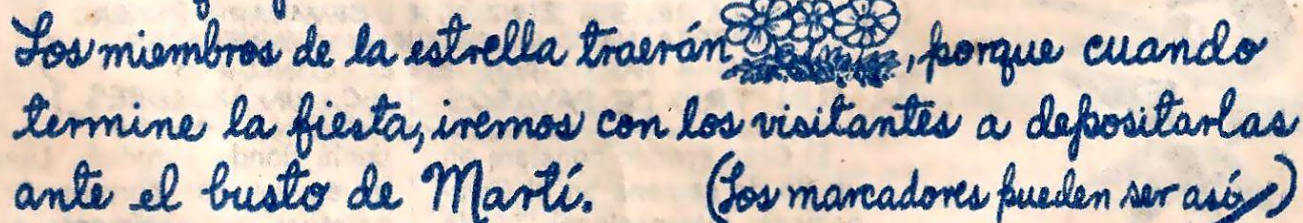 Los miembros de la estrella traerán , porque cuando
termine la fiesta, iremos con los visitantes a depositarlas
ante el busto de Martí. (Los marcadores pueden ser así)